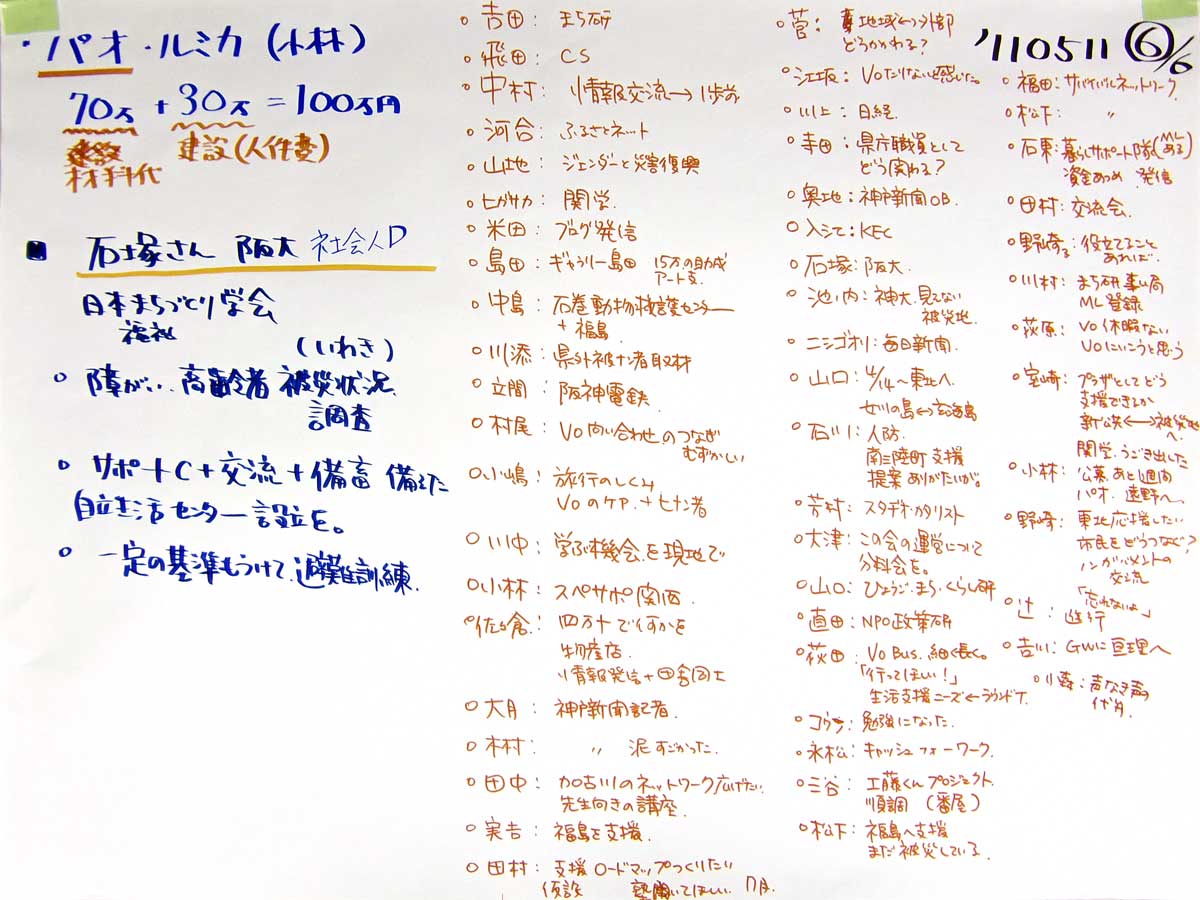 ・パオ・ルミカ(小林)
70万+30万=100万円
建設(人件費)
材料代
■ 石塚さん 阪大 社会人D
日本まちづくり学会
福祉
(いわき)
○ 障がい、高齢者 被災状況
調査
○ サポートC+交流+備畜 備えた
自立生活センター設立を。
○ 一定の基準もうけて避難訓練
○吉田: まち研
○飛田: CS
○中村: 情報交流→1歩前
○河合: ふるさとネット
○山地: ジェンダーと災害復興
○ヒガサカ: 関学.
○米田: ブログ発信
○島田: ギャラリー島田 15万の助成
アート支.
○中島: 石巻動物救護センター
+福島
○川添: 県外被サ者取材
○立間: 阪神電鉄.
○村尾: Vo問い合わせのつなぎ
むずかしい
○小嶋: 旅行のしくみ
Voのケア.+ヒサイ者
○川中: 学ぶ機会を現地で
○小林: スペサポ関西.
○佐倉: 四万十で何かを
物産店.
情報発信+田舎同士
○大月: 神戸新聞記者.
○木村: 〃 泥すごかった.
○田中: 加古川のネットワーク広げたい.
先生向きの講座.
○実吉: 福島を支援.
○田村: 支援ロードマップつくりたい
仮設 塾開いてほしい 7月.
○菅: 地域←→外部
どうかわる?
○江坂: Voたりないと感じた.
○川上: 日経.
○寺田: 県庁職員として
どう関わる?
○奥地: 神戸新聞OB.
○入江: KEC
○石塚: 阪大.
○池ノ内: 神大.見てない
被災地.
○ニシゴオリ: 毎日新聞.
○山口: 4/14〜東北へ.
女川の島←→玄海島
○石川: 人防.
南三陸町支援
提案ありがたいが.
○芳村: スタヂオ・カタリスト
○大津: この会の運営について
分科会を.
○山口: ひょうご.まち.くらし研
○直田: NPO政策研
○荻田: Vo Bus.細く長く.
「行ってほしい!」
生活支援ニーズ←ラウンドT.
○コウラ: 勉強になった.
○永松: キャッシュフォーワーク.
○三谷: 工藤くんプロジェクト
順調 (番屋)
○松下: 福島へ支援
まだ被災している.
'110511 ⑥/6
○福田: サバイバルネットワーク.
○松下: 〃
○石東: 暮らしサポート隊(MLある)
資金あつめ 発信
○田村: 交流会.
○野崎: 役立てること
あれば.
○川村: まち研事ム局
ML登録
○萩原: Vo休暇ない
Voにいこうと思う
○宮崎: プラザとしてどう
支援できるか
新公共←→被災地
へ.
関学.うごき出した
○小林: 公募.あと1週間
パオ 遠野へ.
○野崎: 東北応援したい
市民をどうつなぐ?
ノンガバメントの
交流
○辻: 「忘れないよ」
進行
○吉川: GWに亘理へ
○小森: 声なき声の
代弁.